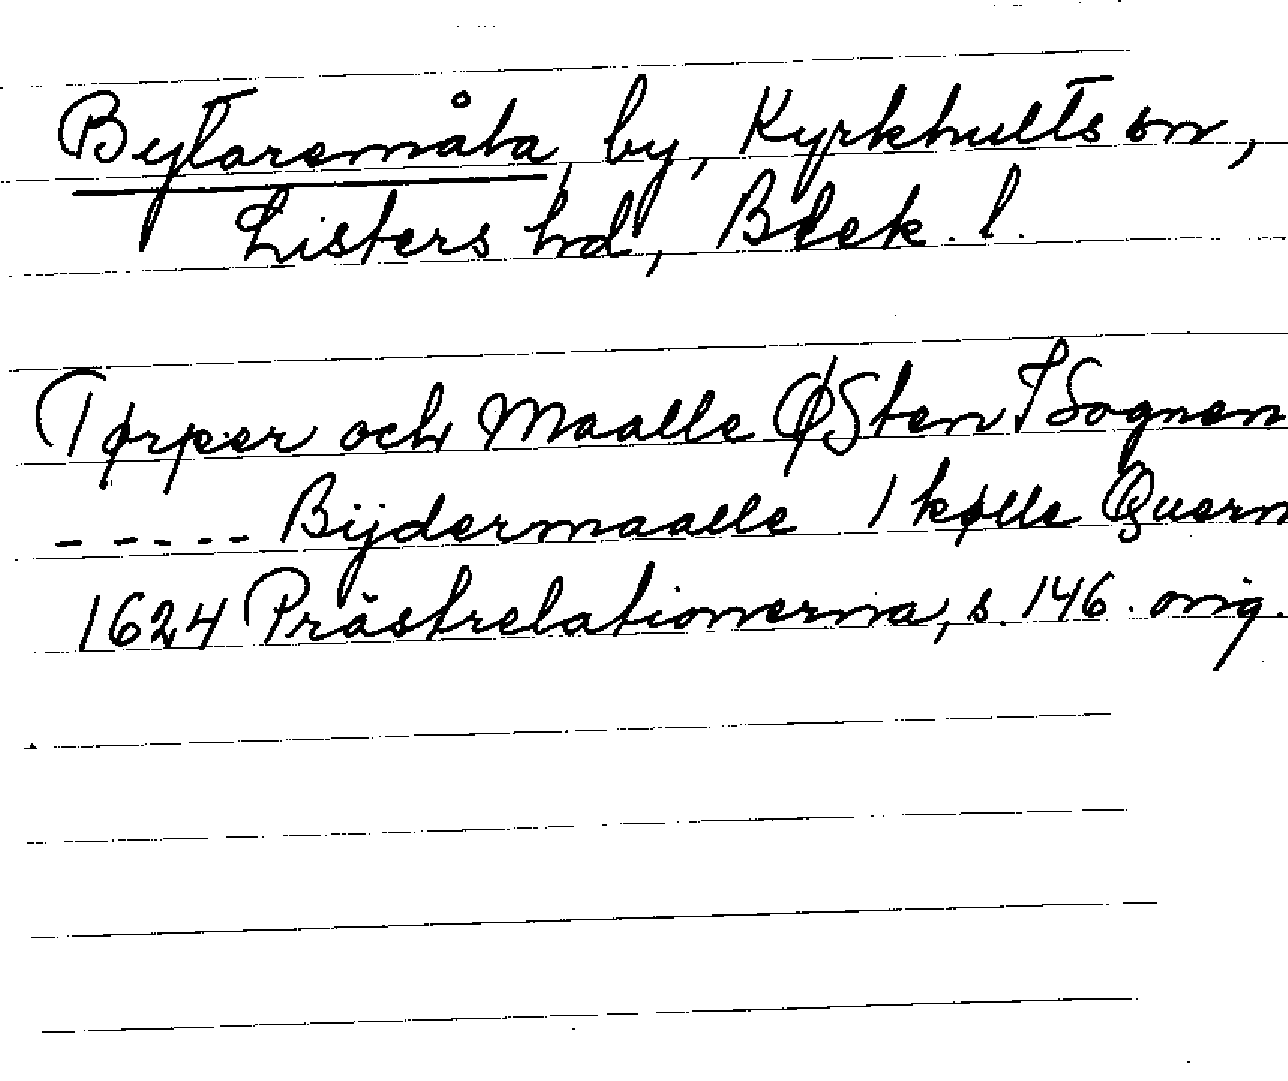 Bytaremåla, by, Kyrkhults sn,
Listers hd, Blek. l.
Tørper och Maalle ØSten I Sognen
- - - - - Bijdermaalle 1 kølle Quern
1624 Prästrelationerna, s. 146. orig.